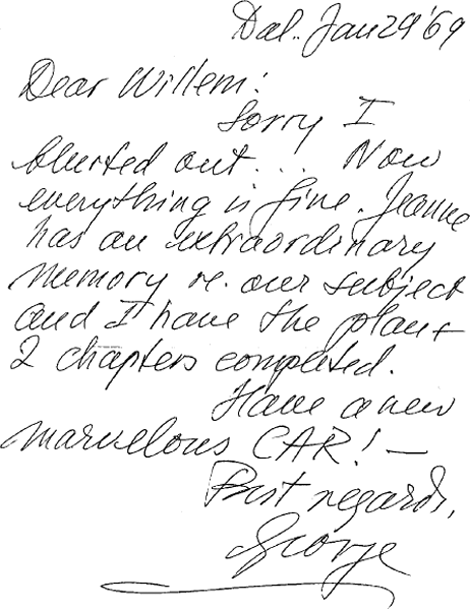 Dal.. Jan 29 '69
Dear Willem:
Sorry I
blurted out... Now
everything is fine. Jeanne
has an extraordinary
memory re. our subject
and I have the plan +
2 chapters completed.
Have a new
marvelous CAR! —
Best regards,
George